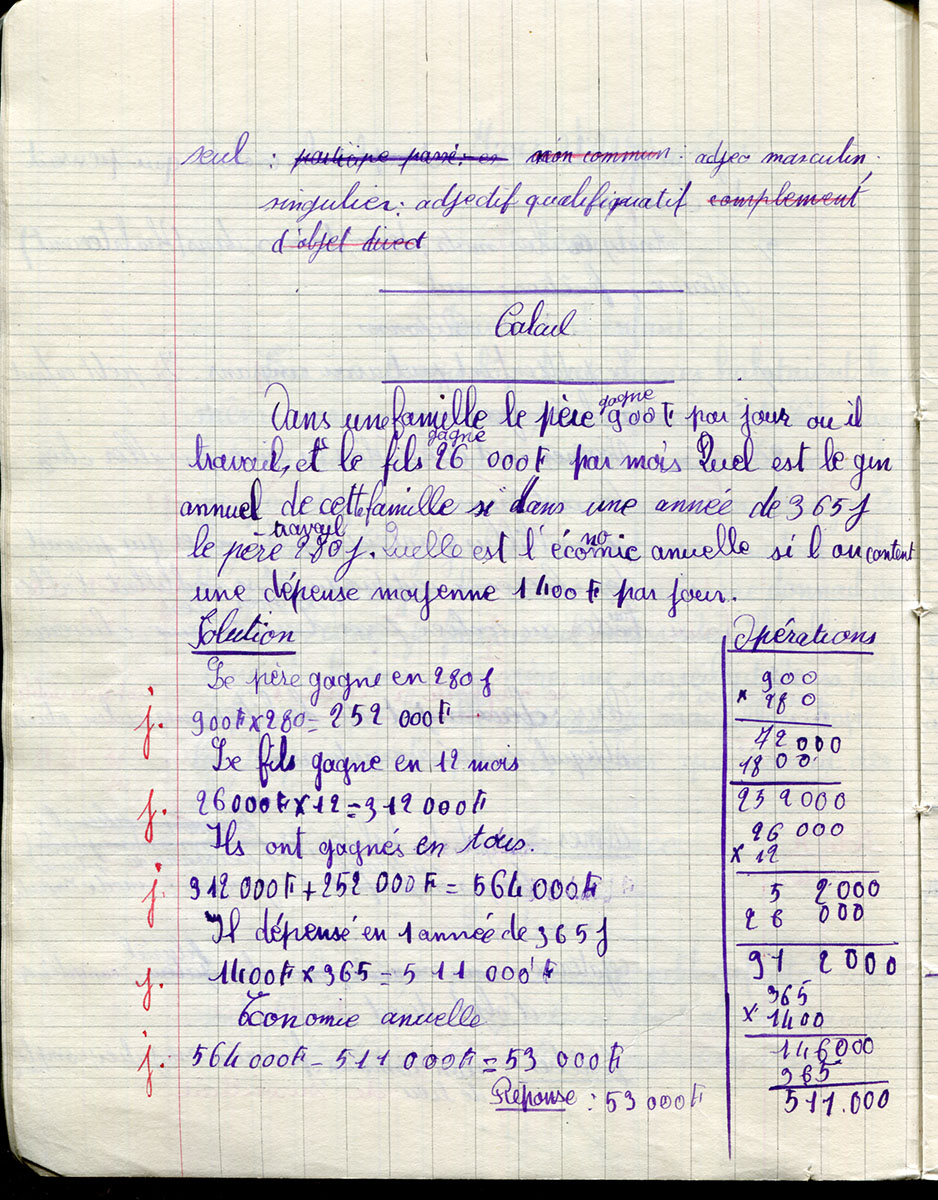 seul : participe passé: es nom commun : adjec masculin.
singulier : adjectif qualifiquatif complement
d'objet direct
Calcul
Dans une famille le père gagne 900F par jour ou il
travail, et le fils gagne 26 000F par mois Quel est le gin
annuel de cette famille si dans une année de 365j
le père travail 280j. Quelle est l'économic anuelle si l'on content
une dépense moyenne 1400F par jour.
Solution
Opérations
Le père gagne en 280j
j. 900F x 280 = 252 000F
Le fils gagne en 12 mois
j. 26000F x 12 = 312 000F
Ils ont gagnés en tous.
j. 312 000F + 252 000F = 564 000F
Il dépensé en 1 année de 365j
j. 1400F x 365 = 511 000F
Économie anuelle
j. 564 000F - 511 000F = 53 000F
Réponse : 53 000F
900
x 280
72 000
18 00
252 000
26 000
x 12
5 2000
26 000
31 2000
365
x 1400
146000
365
511.000